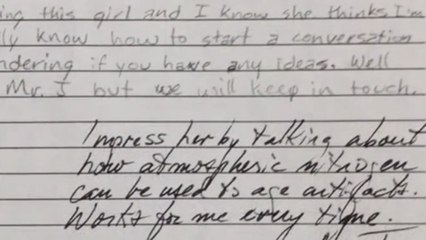 ing this girl and I know she thinks I'm
ly know how to start a conversation
ndering if you have any ideas. Well
Mr. J but we will keep in touch.
Impress her by talking about
how atmospheric nitrogen
can be used to age artifacts.
Works for me every time.